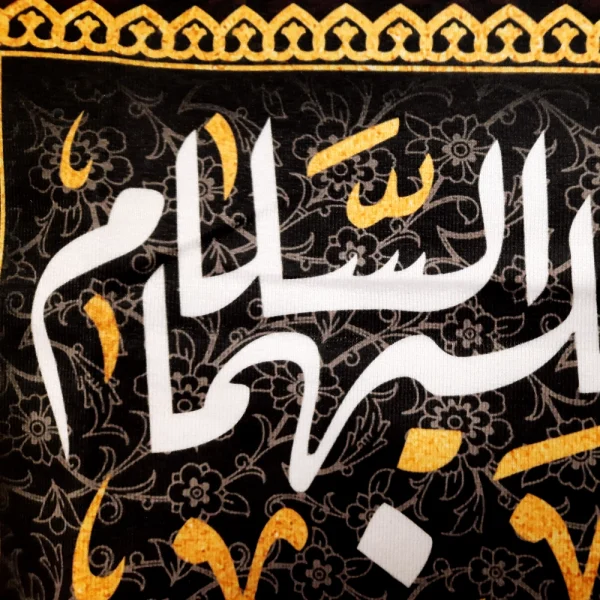 عليهما السلام